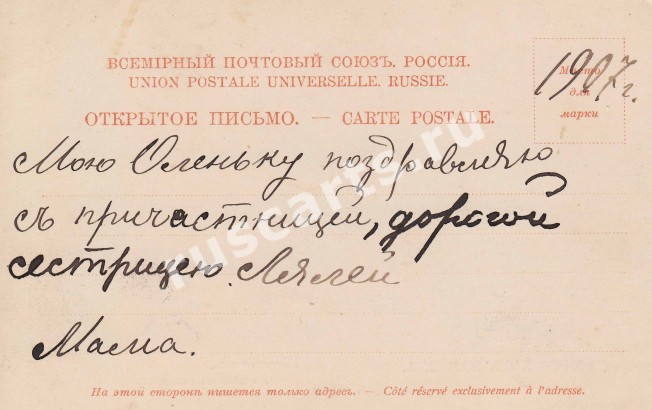 ВСЕМІРНЫЙ ПОЧТОВЫЙ СОЮЗЪ. РОССІЯ.
UNION POSTALE UNIVERSELLE. RUSSIE.
Мѣсто
для
марки
1907 г.
ОТКРЫТОЕ ПИСЬМО. — CARTE POSTALE.
Мою Оленьку поздравляю
съ причастницей, дорогой
сестрицею Лялей
Мама.
На этой сторонѣ пишется только адресъ. — Côté réservé exclusivement à l'adresse.
ruscarts.ru